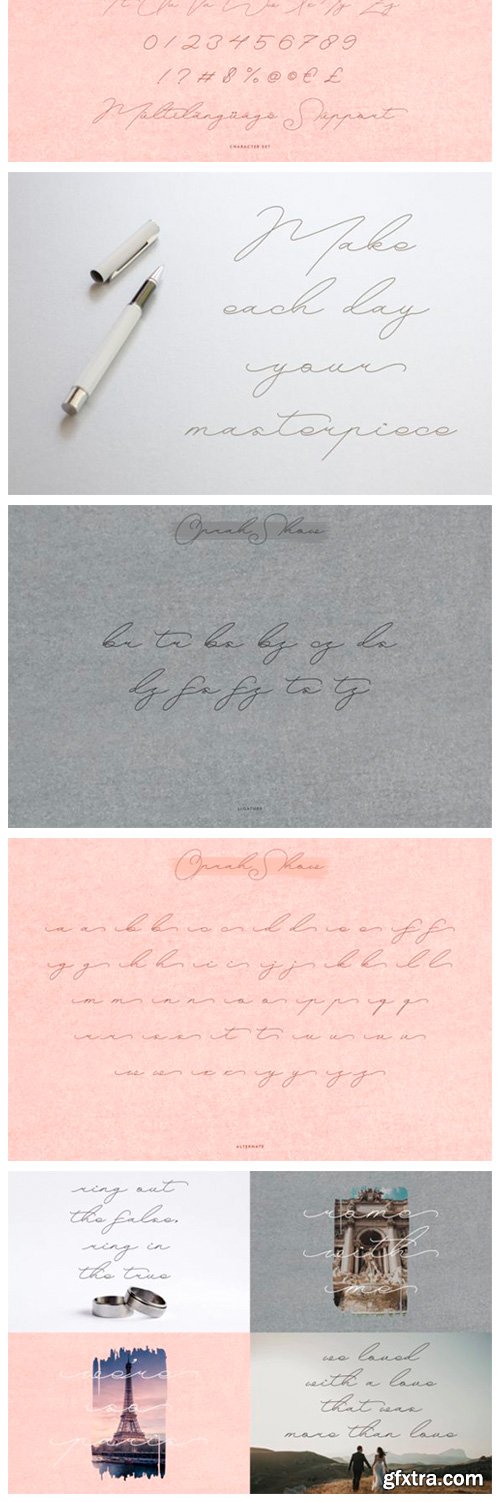 0123456789
!?#&%@©€£
Multilänguage Support
CHARACTER SET
Make
each day
your
masterpiece
Oprah Show
br tr bs bz cz ds
dz fs fz ts tz
LIGATURE
Oprah Show
a a b b c c d d e e f f
g g h h i i j j k k l l
m m n n o o p p q q
r r s s t t u u v v
w w x x y y z z
ALTERNATE
ring out
the false,
ring in
the true
rome
with
me
we're
paris
we loved
with a love
that was
more than love
gfxtra.com